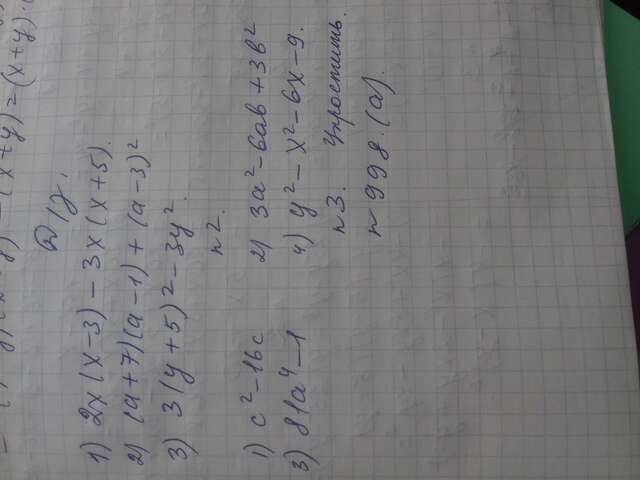 (x+y) = (x+y)
D/з.
1) 2x(x-3) - 3x(x+5).
2) (a+7)(a-1) + (a-3)²
3) 3(y+5)² - 3y².
n2.
1) c² - 16c 2) 3a² - 6ab + 3b²
3) 81a⁴ - 1 4) y² - x² - 6x - 9.
n3. Упростить.
n 998. (a).